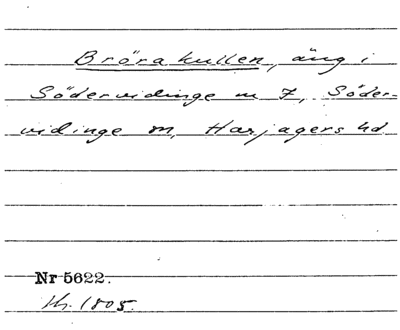 Bröra kullen, äng i
Södervidinge nr 7, Söder-
vidinge sn, Harjagers hd
Nr 5622.
Hs. 1805.